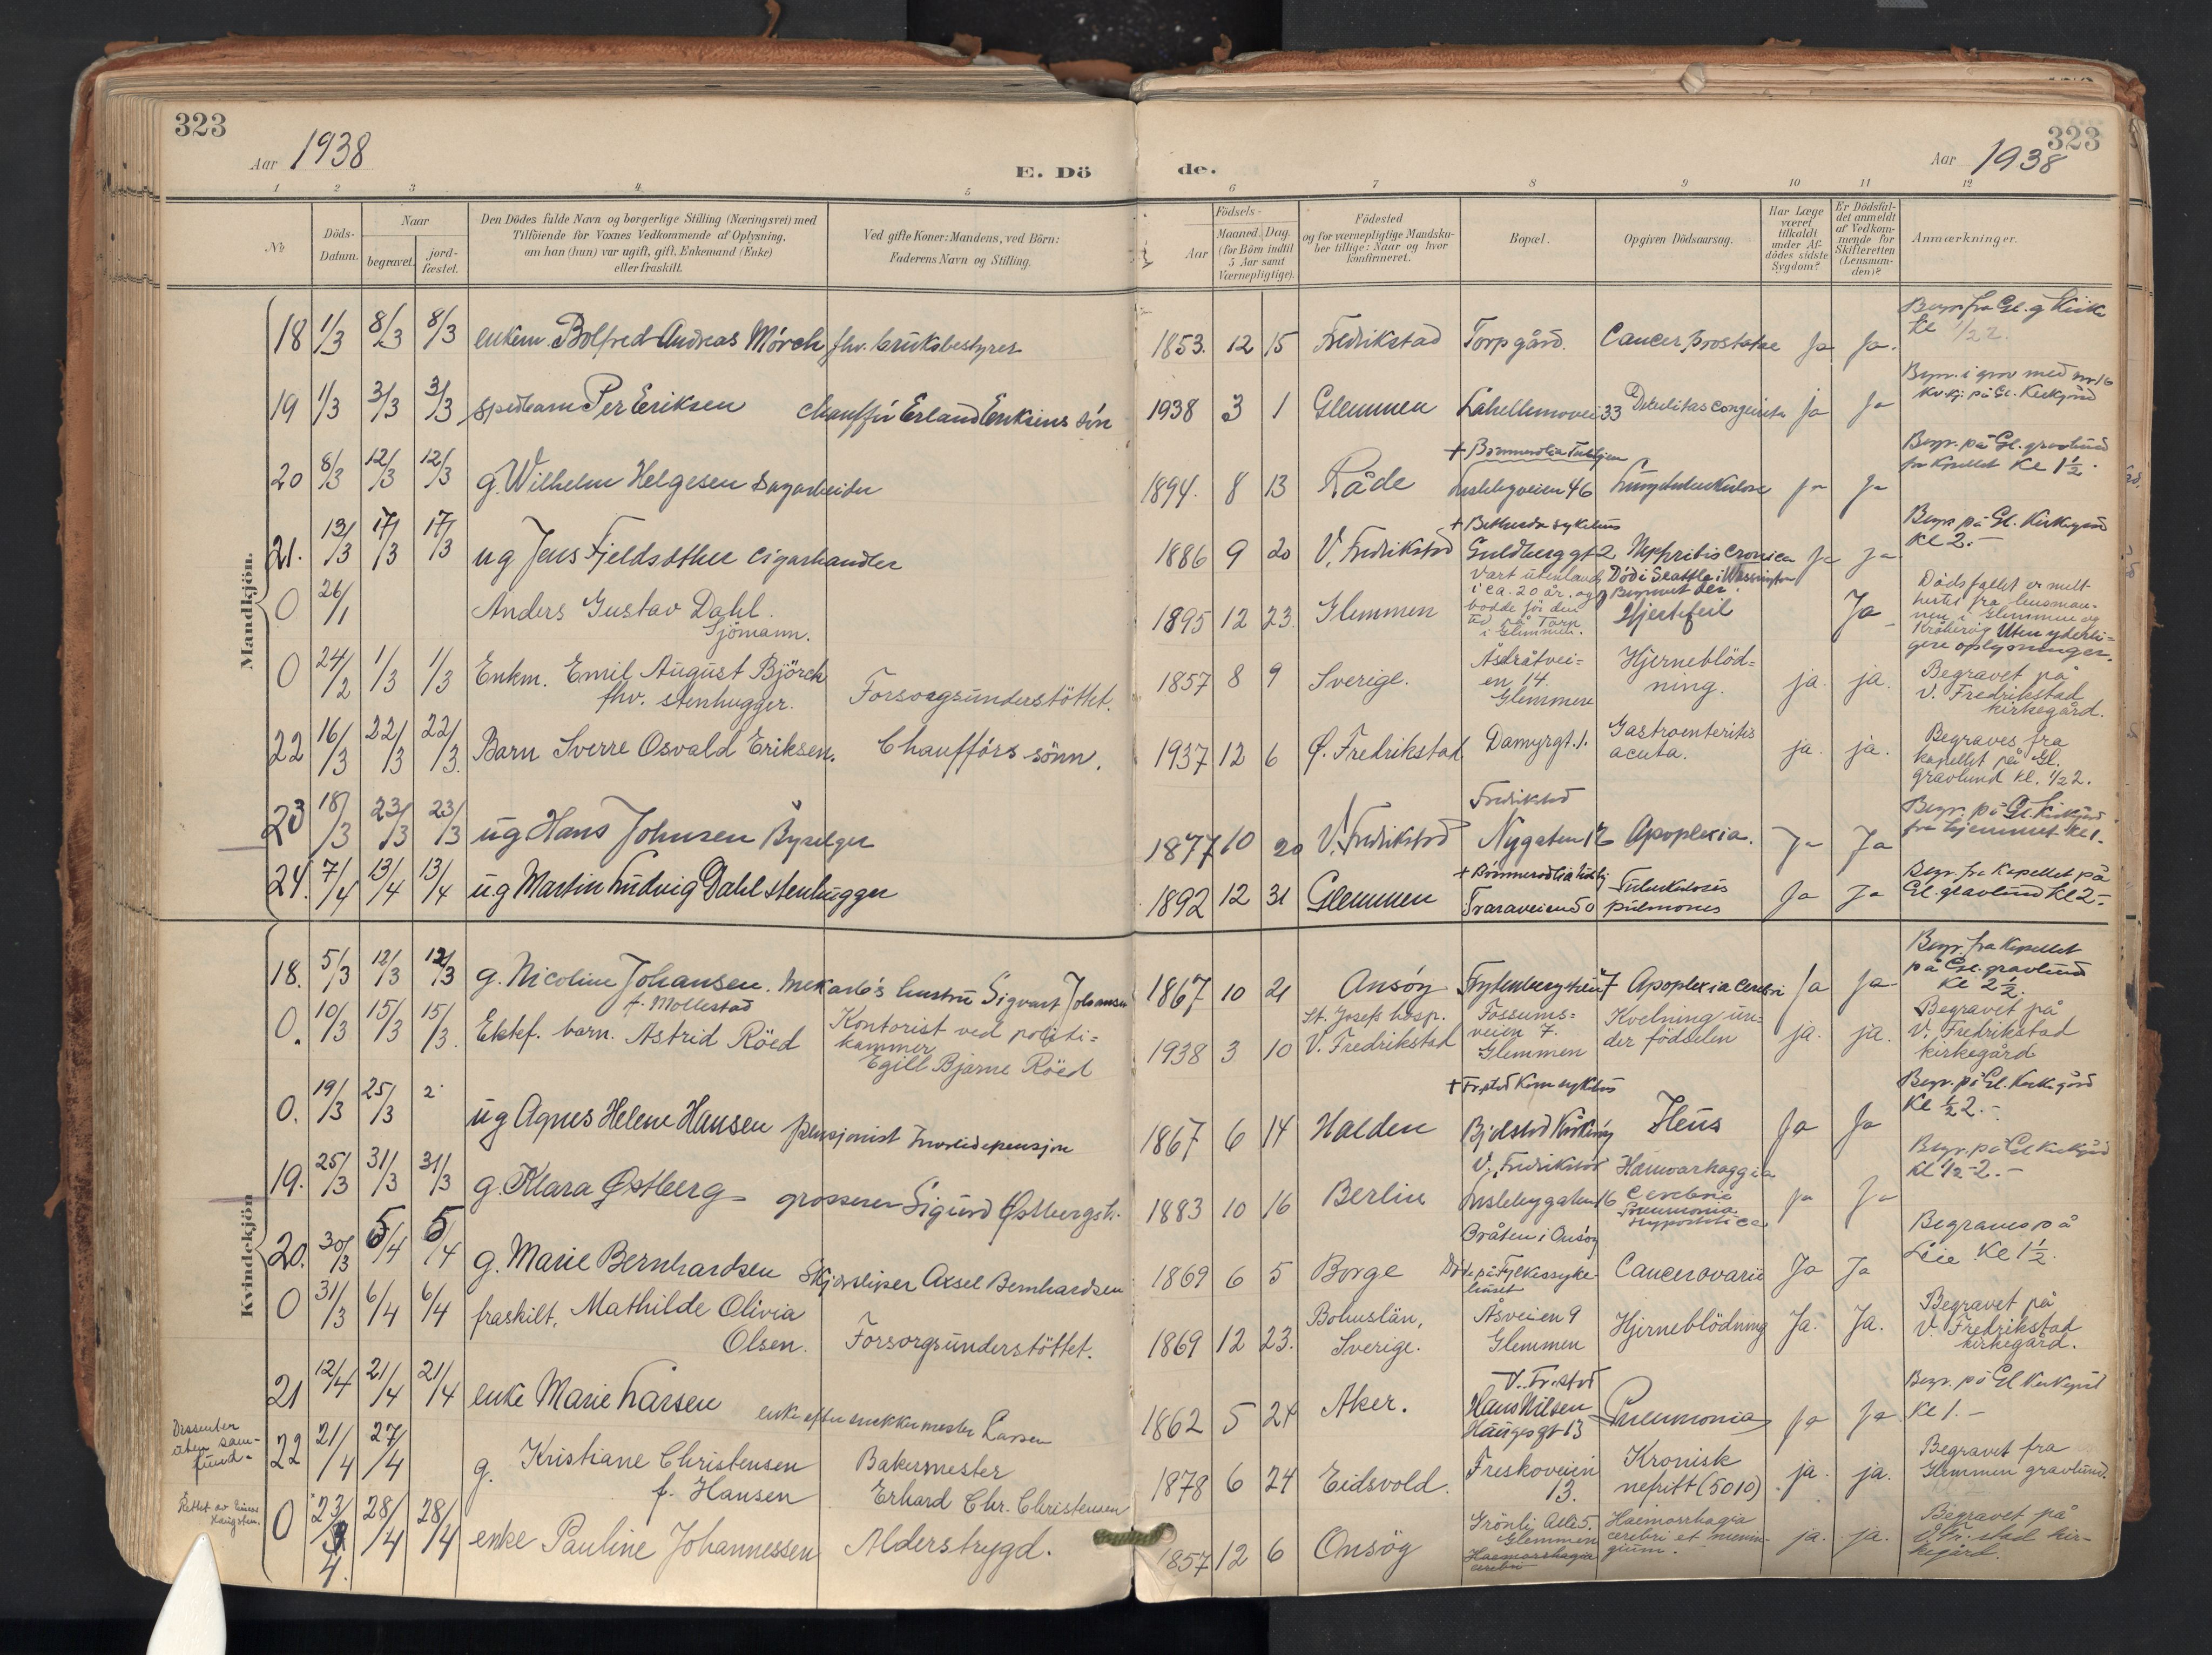 323
Aar 1938
E. Dö
de.
Aar 1938
323
1 2 3 4. 5 6 7 8 9 10 11 12
№
Döds-
Datum.
Naar
begravet.
jord-
fæstet.
Den Dödes fulde Navn og borgerlige Stilling (Næringsvei) med
Tilföiende for Voxnes Vedkommende af Oplysning,
om han (hun) var ugift, gift, Enkemand (Enke)
eller fraskilt.
Ved gifte Koner: Mandens, ved Börn:
Faderens Navn og Stilling.
Födsels-
Aar
Maaned. Dag.
(for Börn indtil
5 Aar samt
Værnepligtige).
Födested
og for værnepligtige Mandsku-
ber tillige: Naar og hvor
konfirmeret.
Bopæl.
Opgiven Dödsaarsag.
Har Læge
været
tilkaldt
under Af-
dödes sidste
Sygdom?
Er Dödsfal-
det anmeldt
af Vedkom-
mende for
Skifteretten
(Lensman-
den)?
Anmærkninger.
Mandkjön.
18 1/3 8/3 8/3 enkem. Bolfred Andreas Mörch fhv. bruksbestyrer
1853. 12 15 Fredrikstad Torp gård. Cancer Prostatae Ja Ja.
Begr. fra Gl. g Kirke
kl 1/2 2.
19 1/3 3/3 3/3 spedbarn Per Eriksen chaufför Erland Eriksens sön
1938 3 1 Glemmen Lahellemovei 33 Debilitas congenita ja ja
Begr. i grav med nr 16
kvkj. på Gl. Kirkegård
20 8/3 12/3 12/3 g. Wilhelm Helgesen sagarbeider
1894. 8 13 Råde
Leslebyveien 46 Lungetuberkulose ja ja
Begr. på Gl. gravlund
fra kapellet Kl 1½.
21. 13/3 17/3 17/3 ug Jens Fjeldsæther cigarhandler
+ Bethesda sykehus
1886 9 20 V. Fredrikstad Guldberg gt 2 Nephritis cronica Ja ja
Begr. på Gl. Kirkegård
Kl 2.-
0 26/1 Anders Gustav Dahl.
Sjömann.
1895 12 23. Glemmen
Vært utenlands
i ca. 20 år. og
bodde för den
tid på Torp
i Glemmen.
Död i Seattle i Wassington
Begravet der.
Hjertefeil
Ja
Dödsfallet er melt
hertil fra lensman-
nen i Glemmen og
Kråkeröy Uten yderli-
gere oplysninger.
0 24/2 1/3 1/3 Enkm. Emil August Björck
fhv. stenhugger. Forsorgsunderstöttet.
1857 8 9 Sverige.
en 14.
Glemmen
Hjerneblöd-
ning. ja. ja.
Begravet på
V. Fredrikstad
kirkegård.
22 16/3 22/3 22/3. Barn Sverre Osvald Eriksen. Chauffórs sönn.
1937 12 6 Ø. Fredrikstad Damyrgt. 1.
Gastroenteritis
acuta. ja. ja.
Begraves fra
kapellet på Gl.
gravlund kl. 1/2 2.
23 18/3 23/3 23/3 ug Hans Johnsen Byselger
Fredrikstad
1877 10 20 V. Fredrikstad Nygaten 17 Apoplexia. Ja Ja
Begr. på Gl. Kirkegård
fra hjemmet Kl 1.
24. 7/4 13/4 13/4 ug Martin Ludvig Dahl stenhugger
1892 12 31 Glemmen Traraveien 50
Tuberkulosis
pulmones Ja Ja
Begr. fra Kapellet på
Gl. gravlund kl 2-
Kvindekjön
18. 5/3 12/3 12/3 g. Nicoline Johansen. murkarls hustru Sigvart Johansen
f. Mollestad
1867 10 21 Onsöy Apoplexia cerebri Ja ja
Begr. fra Kapellet
på Gl. gravlund
Kl 2½.
0. 10/3 15/3 15/3. Ektef. barn. Astrid Röed
Kontorist ved politi-
kammer
Egill Bjarne Röed
St. Josefs hosp.
1938 3 10 V. Fredrikstad
Fossums-
veien 7.
Glemmen
Kvelning un-
der födselen ja. ja.
Begravet på
V. Fredrikstad
kirkegård
0. 19/3 25/3 2 ug Agnes Helene Hansen pensjonist Invalidepensjon
+ Fr.stad Kom sykehus
1867 6 14 Halden Ileus Ja Ja
Begr. på Gl. Kirkegård
Kl ½ 2.-
19. 25/3 31/3 31/3 g. Klara Østberg grosserer Sigurd Østbergs h.
V. Fredrikstad
1883 10 16 Berlin
Hæmoarhaggia
Cerebria
Pneumonia
hypostitica ja Ja
Begr. på Gl Kirkegård
kl 1/2-2.-
20. 30/3 5/4 5/4 g. Marie Bernhardsen Skjærsliper Axsel Bernhardsen
Bråten i Onsöy
1869 6 5 Borge Död på Fylkessyke-
huset
Cancer ovarii Ja Ja
Begraves på
Leie Kl 1½.
0 31/3 6/4 6/4 fraskilt, Mathilde Olivia
Olsen. Forsorgsunderstöttet.
1869 12 23.
Bohuslän,
Sverige.
Åsveien 9
Glemmen
Hjerneblödning Ja. Ja.
Begravet på
V. Fredrikstad
kirkegård.
21 12/4 21/4 21/4 enke Marie Larsen enke efter snekkermester Larsen
V. Fr.stad
1862 5 24 Aker.
Hans Nilsen
Hauges gt 13
Pneumonia ja Ja
Begr. på Gl Kirkegård
Kl 1.-
Dissenter
uten sam-
fund.
22 21/4 27/4 g. Kristiane Christensen
f. Hansen
Bakermester
Erhard Chr. Christensen
1878 6 24 Eidsvold.
Freskoveien
13.
Kronisk
nefritt (5010) ja. ja.
Begravet fra
Glemmen gravlund.
0 23/4. 28/4 28/4 enke Pauline Johannessen Alderstrygd.
1857 12 6 Onsöy
Grönli Alle 5.
Glemmen
Haemorrhagia
cerebri
Haemorrhagia
cerebri et menin-
gium. ja. ja.
Begravet på
V. Fr. stad kir-
kegård.